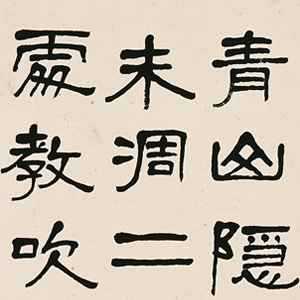 青山隐
未凋二
處教吹